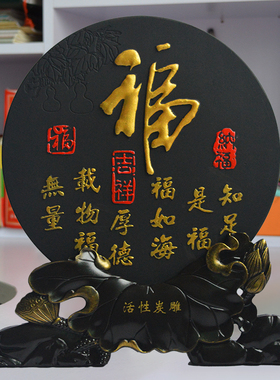 福
知足
是福
福如海
吉祥
厚德
載物福
無量
福
活性炭雕